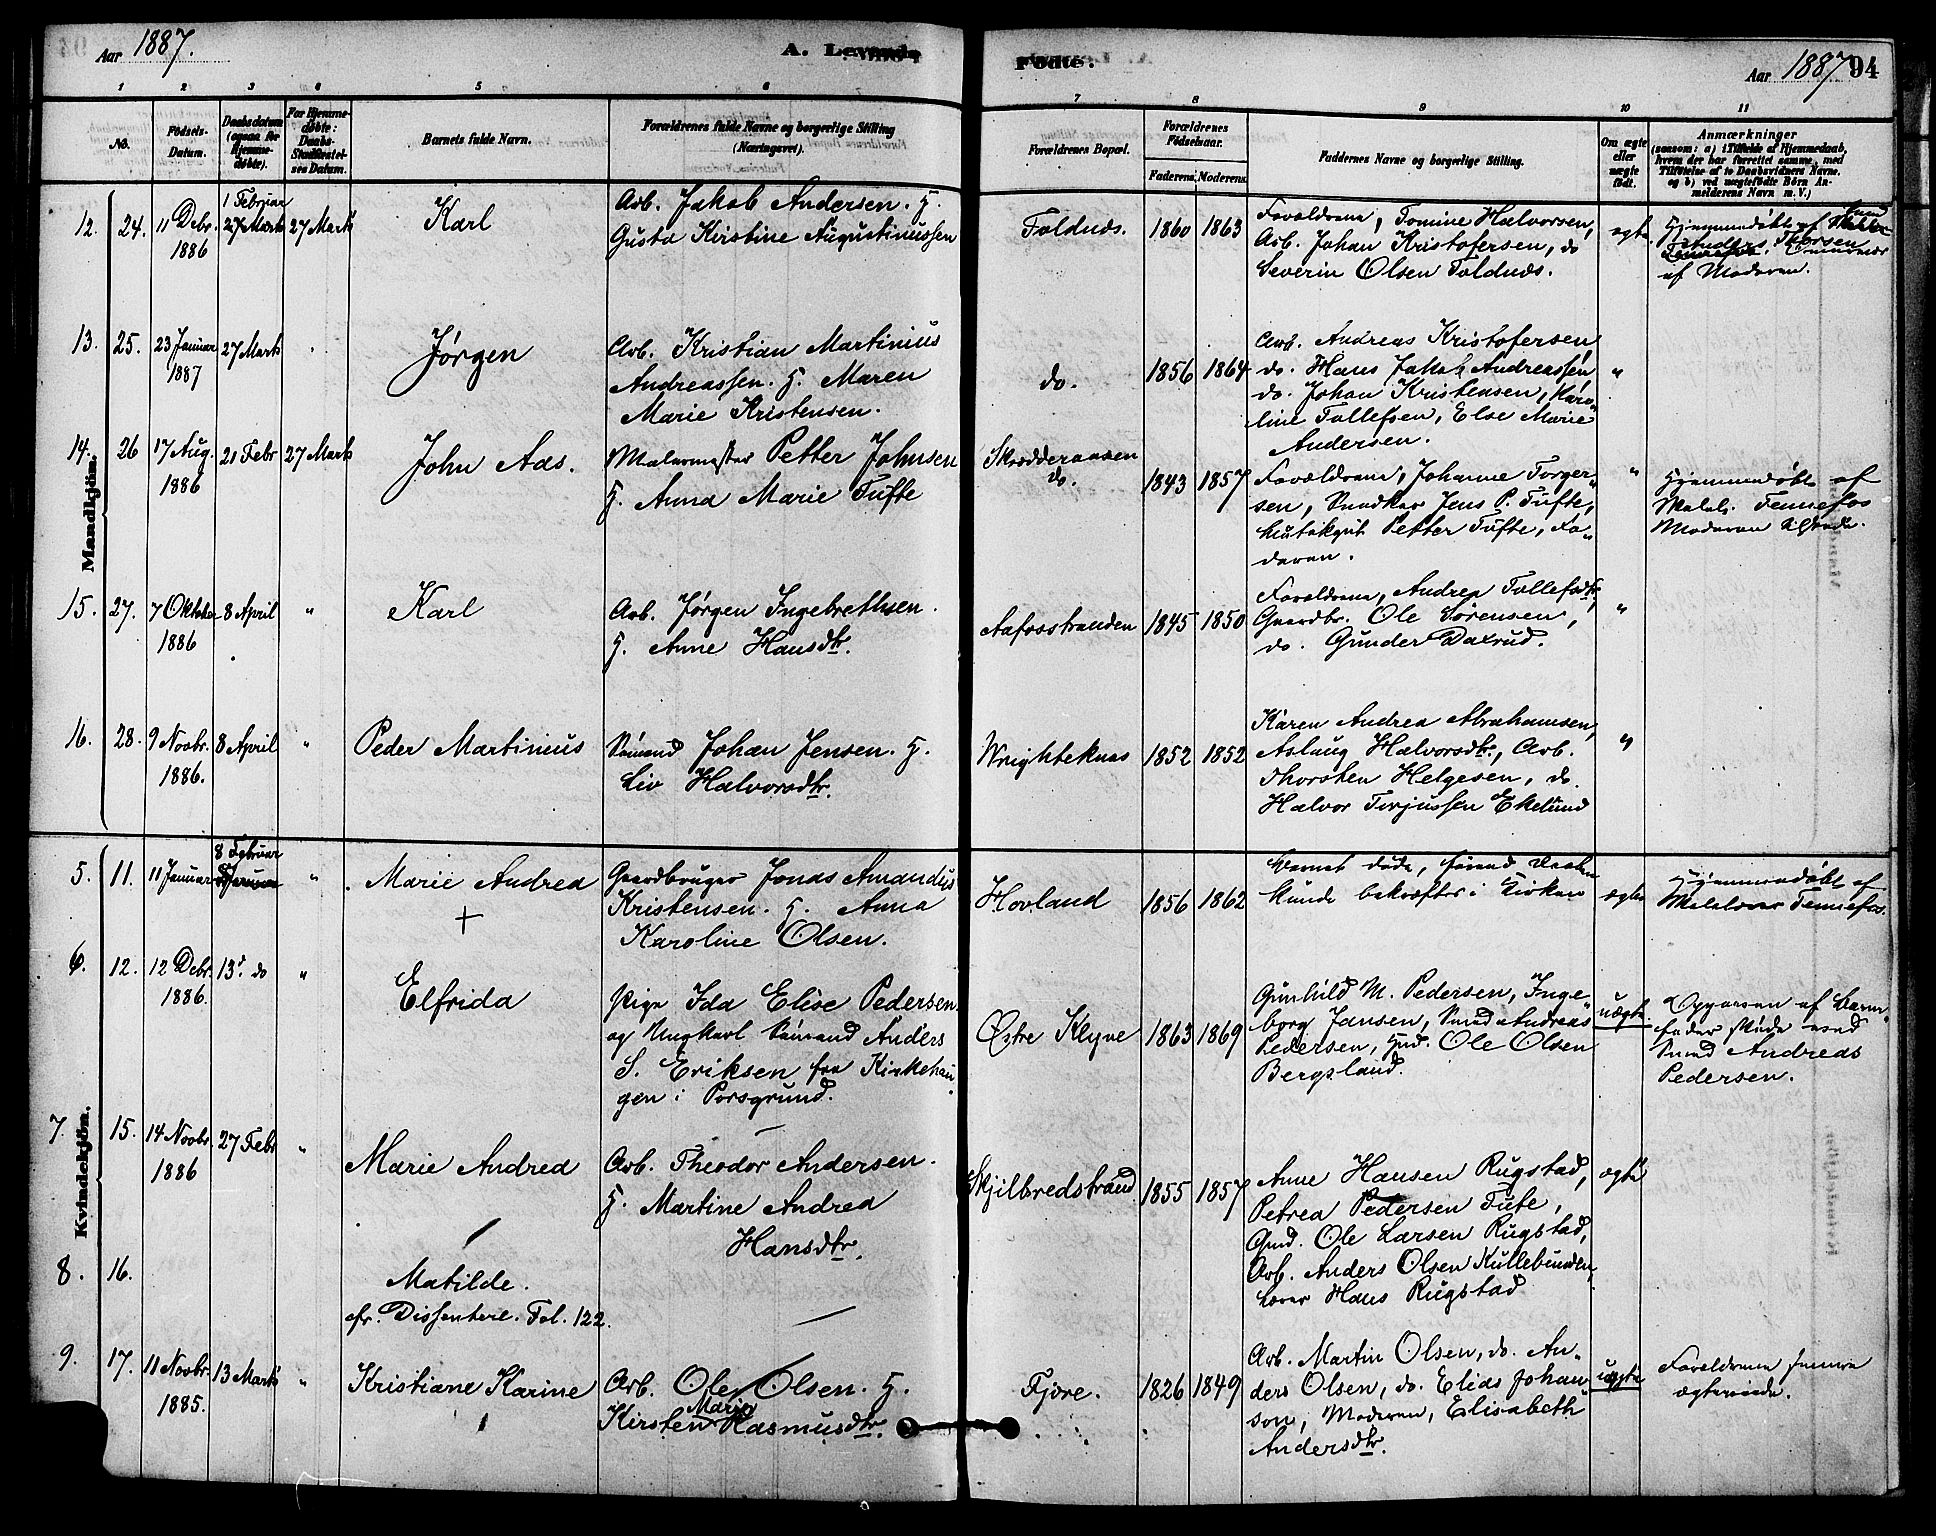 Aar 1887.
A. Levende
Fødte.
Aar 1887
94
1 2 3 4 5 6
No. Fødsels-Datum. Daabsdatum (ogsaa for Hjemmedøbte). For Hjemmedøbte: Daabs-Stadfæstelses Datum. Barnets fulde Navn. Forældrenes fulde Navne og borgerlige Stilling (Næringsvei).
7 8 9 10 11
Forældrenes Bopæl. Forældrenes Fødselsaar. Faderens. Moderens. Faddernes Navne og borgerlige Stilling. Om ægte eller uægte født. Anmærkninger (saasom: a) i Tilfælde af Hjemmedaab, hvem der har forrettet samme, med Tilføielse af to Daabsvidners Navne, og b) ved uægtefødte Børn Anmelderens Navn m. V.)
Mandkjøn.
12. 24. 11 Debr. 1886 1 Februar 27 Marts 27 Marts
Karl
Arb. Jakob Andersen. H.
Gusta Kirstine Augustinussen
Foldnæs. 1860 1863
Forældrene, Tomine Halvorsen,
Arb. Johan Kristofersen, do
Severin Olsen Foldnæs.
ægte
Hjemmedøbt af
Anders Thorsen
af Moderen.
13. 25. 23 Januar 1887 27 Marts "
Jørgen
Arb. Kristian Martinius
Andreassen. H. Maren
Marie Kristensen.
do. 1856 1864
Arb. Andreas Kristofersen,
do. Hans Jakob Andreassen
do. Johan Kristensen, Karo-
line Tollefsen, Else Marie
Andersen.
"
14. 26 17 Aug. 1886 21 Febr 27 Marts
John Aas.
Malermester Petter Johnsen
H. Anna Marie Tufte
Skrædderaasen
do. 1843 1857
Forældrene, Johanne Torger-
sen, Snedker Jens P. Tufte,
Petter Tufte, Fa-
deren.
"
Hjemmedøbt af
Tennefos
Moderen
15. 27. 7 Oktober 1886 8 April "
Karl
Arb. Jørgen Ingebrethsen.
H. Anne Hansdtr.
Aafosstranden 1845 1850
Forældrene, Andrea Tollefsdtr,
Gaardbr. Ole Sørensen,
do. Gunder Daxrud.
"
16. 28. 9 Novbr. 1886. 8 April "
Peder Martinius
Sømand Johan Jensen. H.
Liv Halvorsdtr.
Wrighteknas 1852 1852
Karen Andrea Abrahamsen,
Aslaug Halvorsdtr., Arb.
Thorsten Helgesen, do.
Halvor Torjussen Ekelund
"
Kvindekjøn.
5. 11. 11 Januar 8 Februar "
Marie Andrea
+
Gaardbruger Jonas Amandus
Kristensen. H. Anna
Karoline Olsen.
Hovland 1856 1862
Barnet døde, førend Daaben
kunde bekræftes i Kirken
ægte
Hjemmedøbt af
Tennefos.
6. 12. 12 Debr. 1886. 13d. do "
Elfrida
Pige Ida Elise Pedersen
og Ungkarl Sømand Anders
S. Eriksen fra Kirkehau-
gen i Porsgrund.
Østre Klyve 1863 1869
Gunhild M. Pedersen, Inge-
borg Jansen, Smed Andreas
Pedersen, Gmd. Ole Olsen
Bergsland.
uægte
Opgaven af Barne-
fader skede ved
Smed Andreas
Pedersen.
7. 15. 14 Novbr. 1886 27 Febr "
Marie Andrea
Arb. Theodor Andersen.
H. Martine Andrea
Hansdtr.
Skjilbredstrand 1855 1857
Anne Hansen Rugstad,
Petrea Pedersen Tufte,
Gmd. Ole Larsen Rugstad,
Arb. Anders Olsen Kullebunden,
Hans Rugstad
ægte
8. 16.
Matilde.
cfr. Dissentere. Fol. 122.
9. 17. 11 Novbr. 1885. 13 Marts "
Kristiane Karine
Arb. Ole Olsen. H.
Kirsten Marie Rasmusdtr.
Fjære. 1826 1849
Arb. Martin Olsen, do. An-
ders Olsen, do. Elias Johan-
son, Moderen, Elisabeth
Andersdtr.
uægte
Forældrene senere
ægteviede.